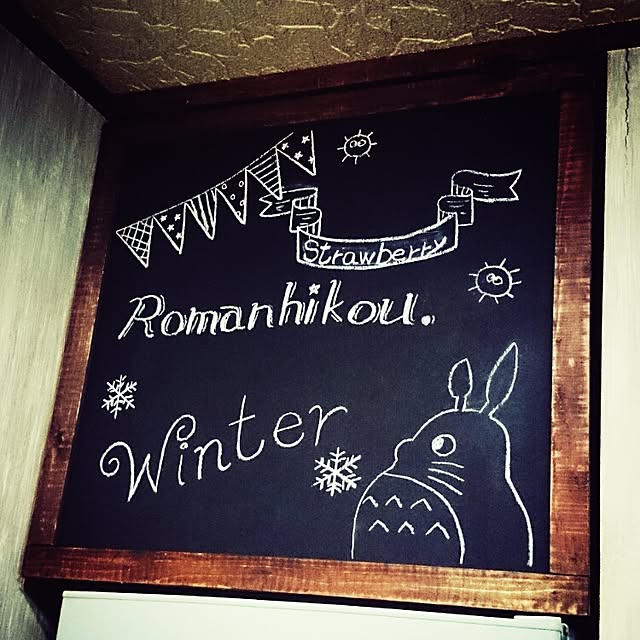 Strawberry
Romanhikou.
Winter